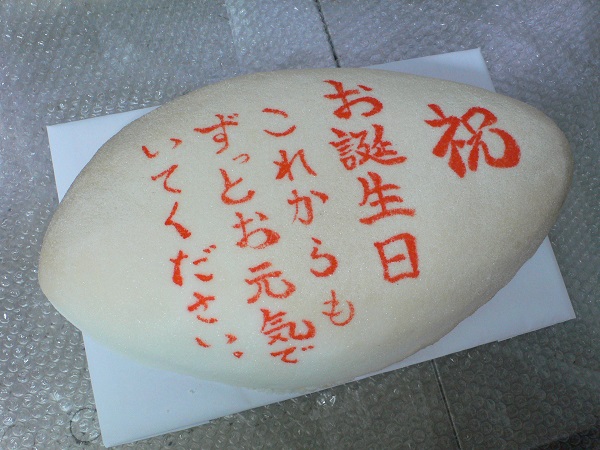 祝
お誕生日
これからも
ずっとお元気で
いてください。